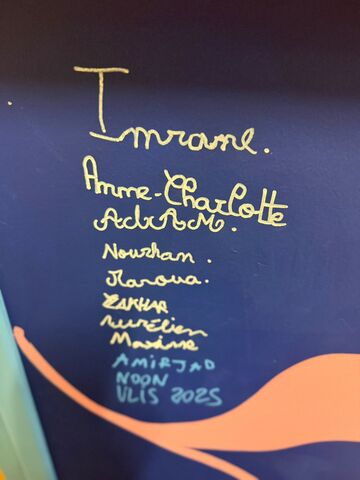 Imrane.
Anne-Charlotte
AdAM.
Nourhan.
Maroua.
ZAKHAR
Aurélien
Maxime
AMIRJAD
NOON
ULIS 2025